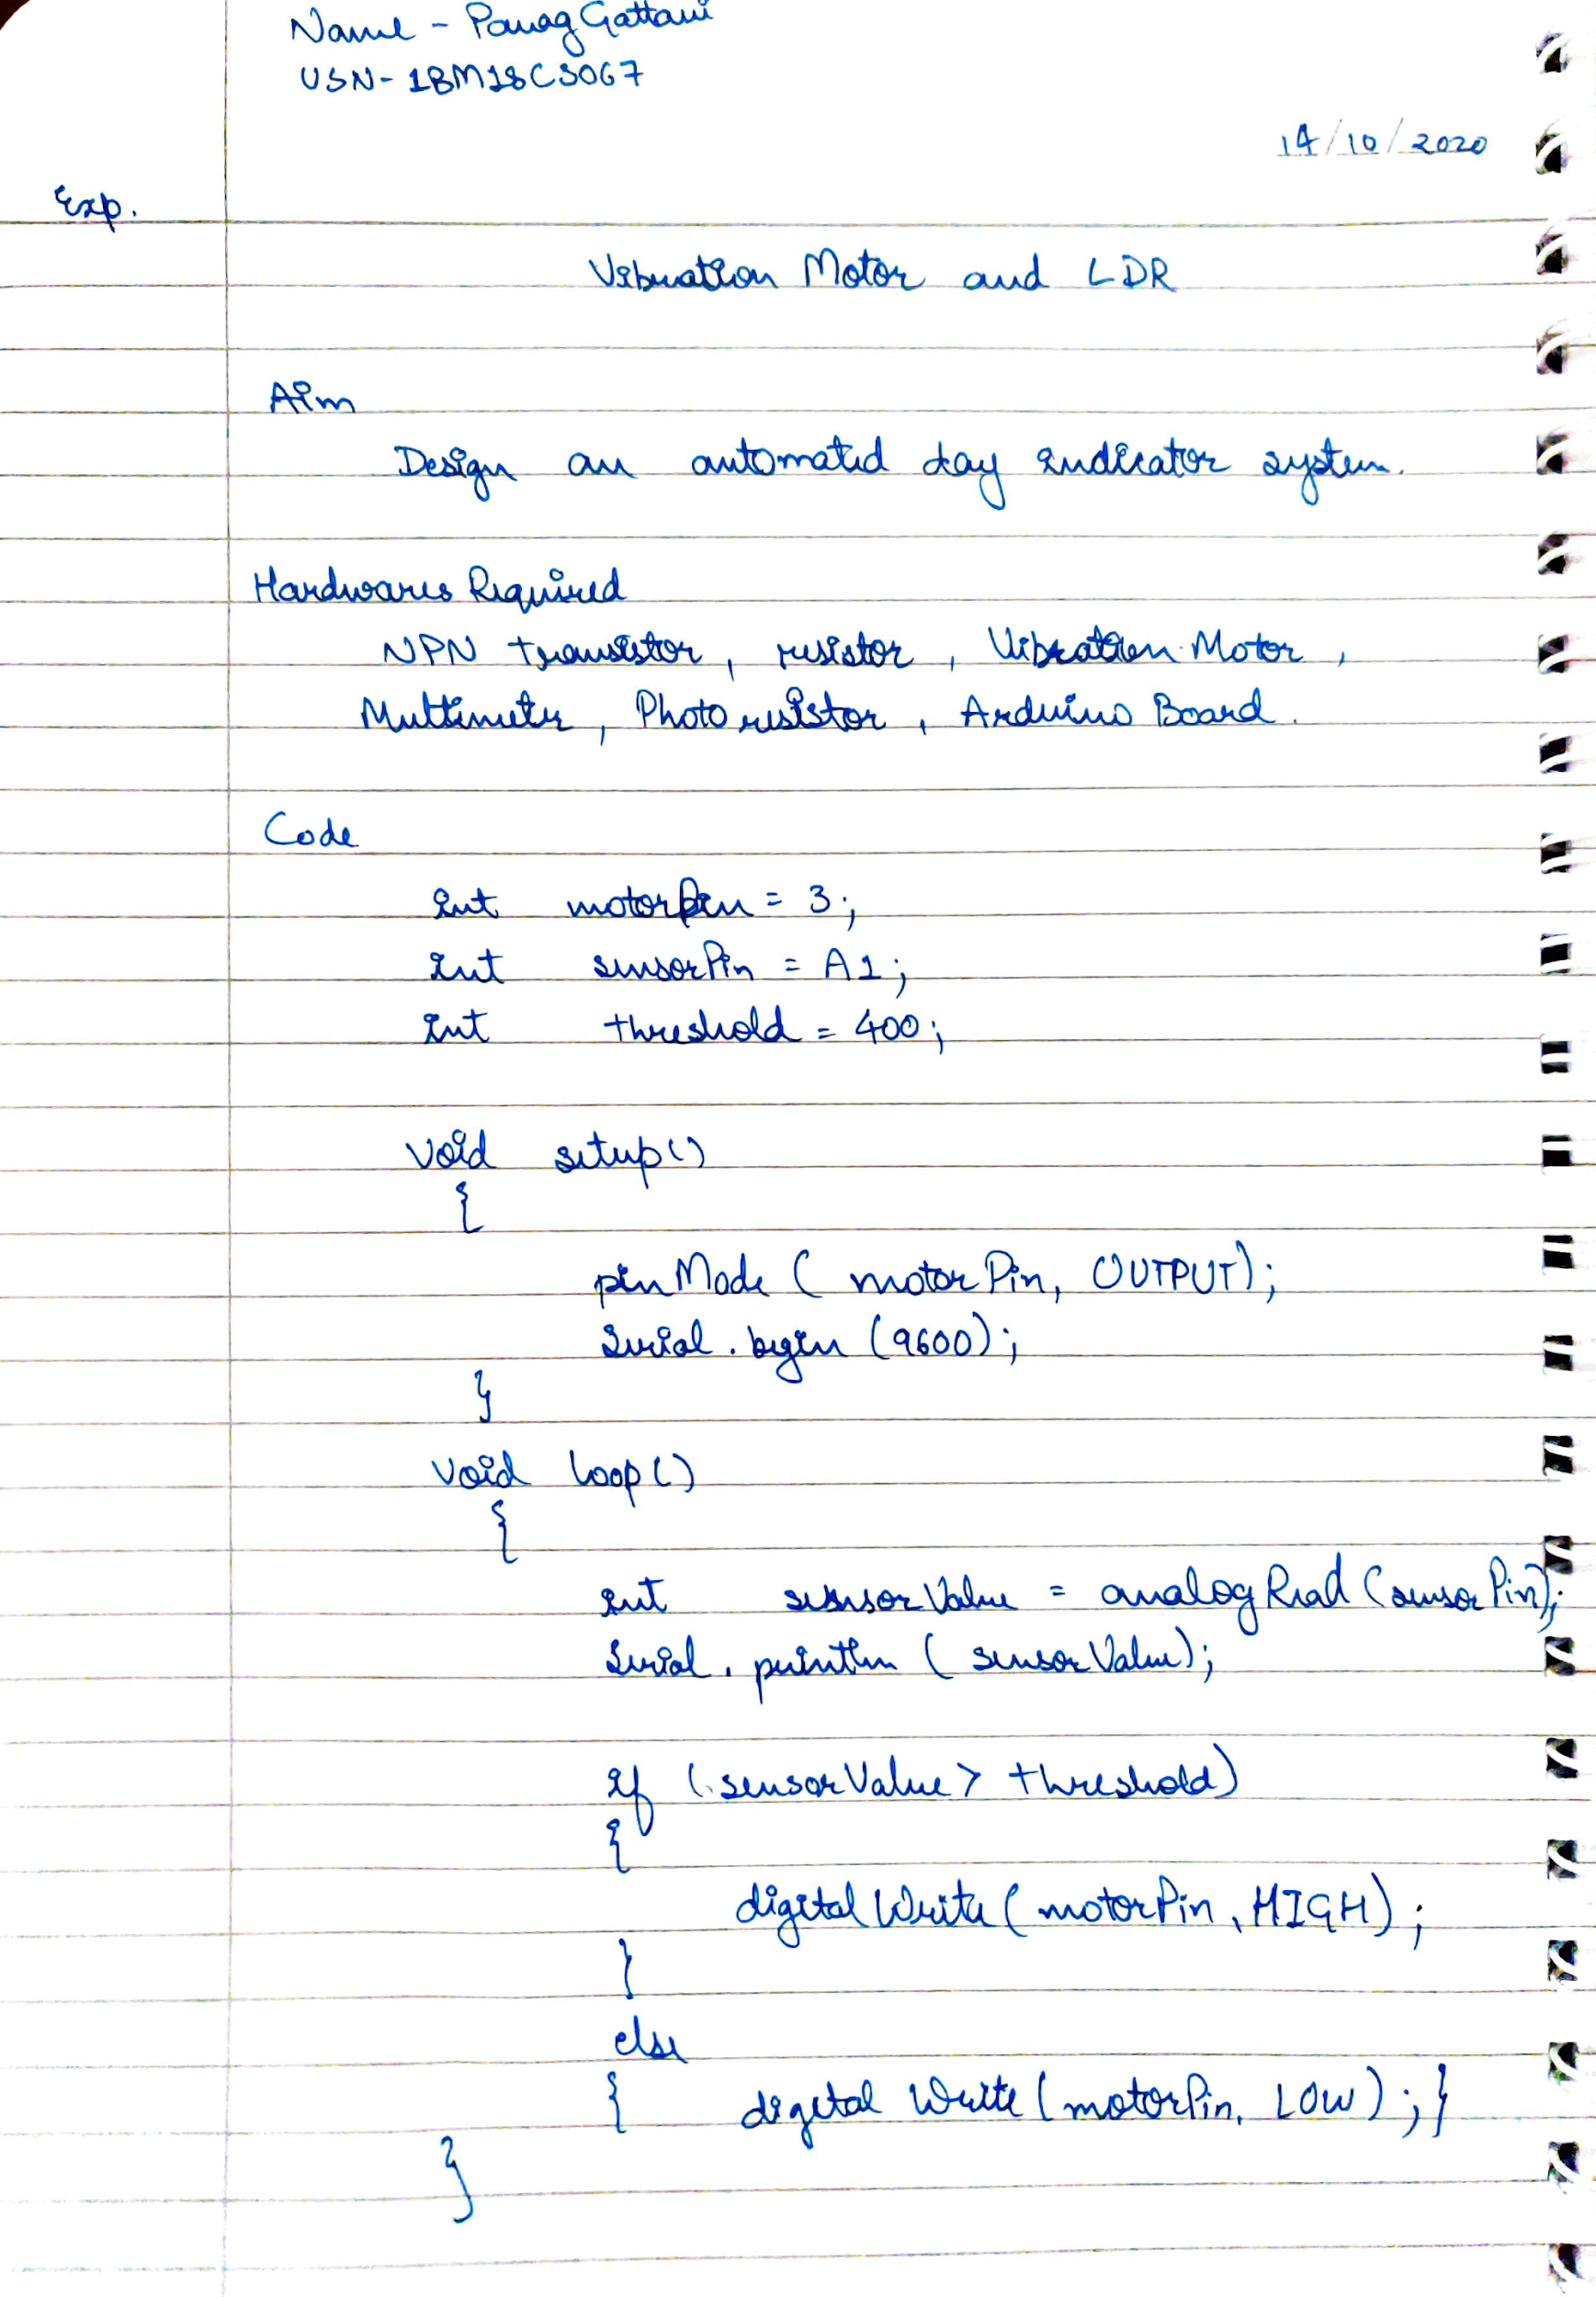 Name - Parag Gattani
USN- 1BM18CS067
14/10/2020
Exp.
Vibration Motor and LDR
Aim
Design an automated day indicator system.
Hardwares Required
NPN transistor, resistor, Vibration Motor,
Multimeter, Photo resistor, Arduino Board.
Code
int motorPin = 3;
int sensorPin = A1;
int threshold = 400;
void setup()
{
pinMode ( motorPin, OUTPUT);
Serial.begin (9600);
}
void loop()
{
int sensorValue = analogRead (sensorPin);
Serial.println ( sensorValue);
if (sensorValue > threshold)
{
digitalWrite ( motorPin, HIGH);
}
else
{ digitalWrite ( motorPin, LOW); }
}